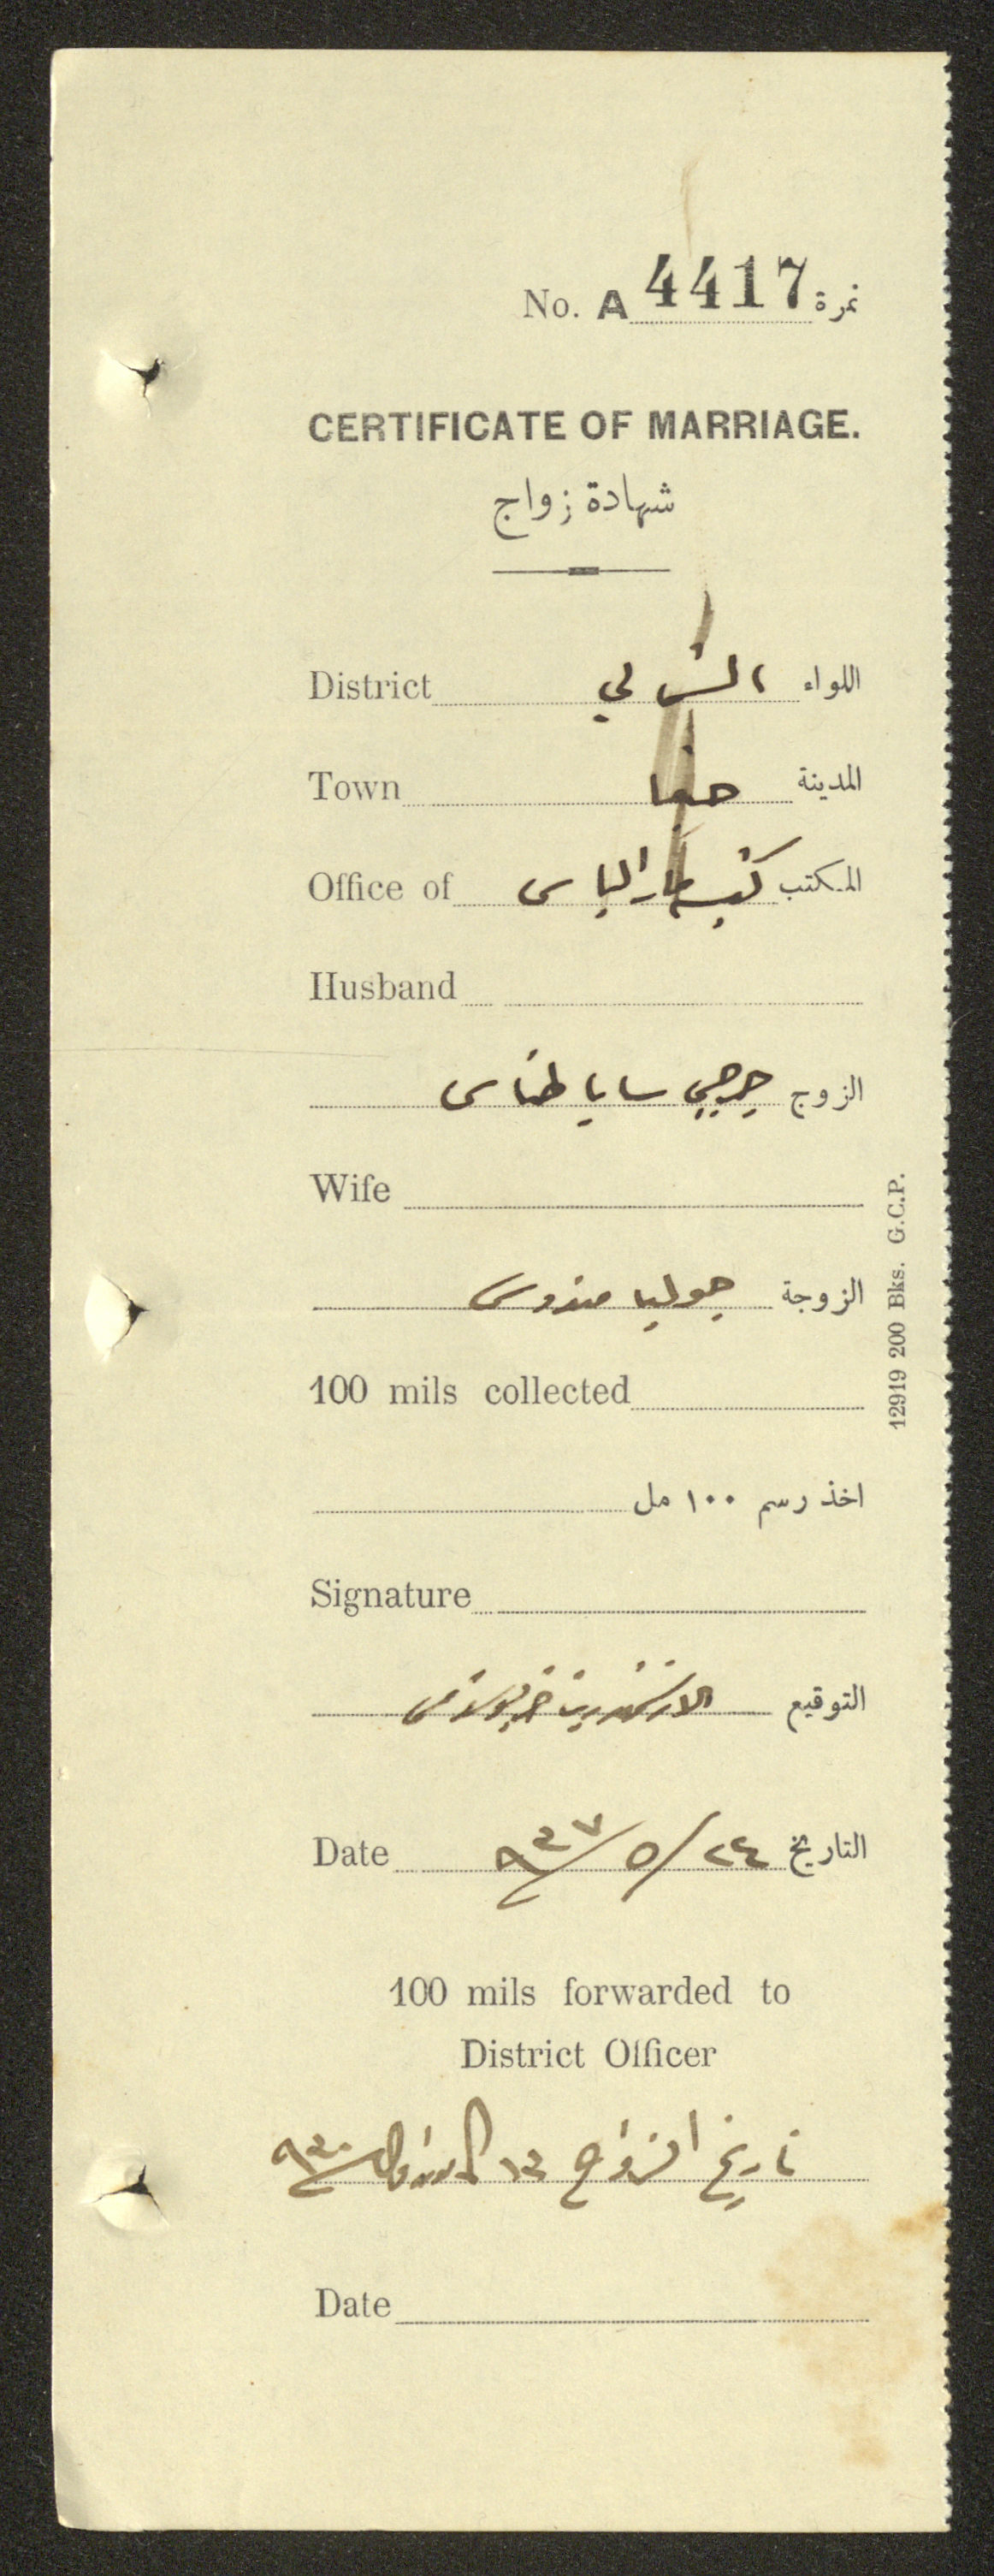 No. A 4417 نمرة
CERTIFICATE OF MARRIAGE.
شهادة زواج
District الشمالي اللواء
Town حيفا المدينة
Office of كنيسة مار الياس المكتب
Husband
الزوج جرجي سابا طناس
Wife
الزوجة جوليا
100 mils collected
اخذ رسم ١٠٠ مل
Signature
التوقيع
Date ٢٤/٥/٩٣٧ التاريخ
100 mils forwarded to
District Officer
تاريخ الزواج ١٣ ٩٣٠
Date
12919 200 Bks. G.C.P.